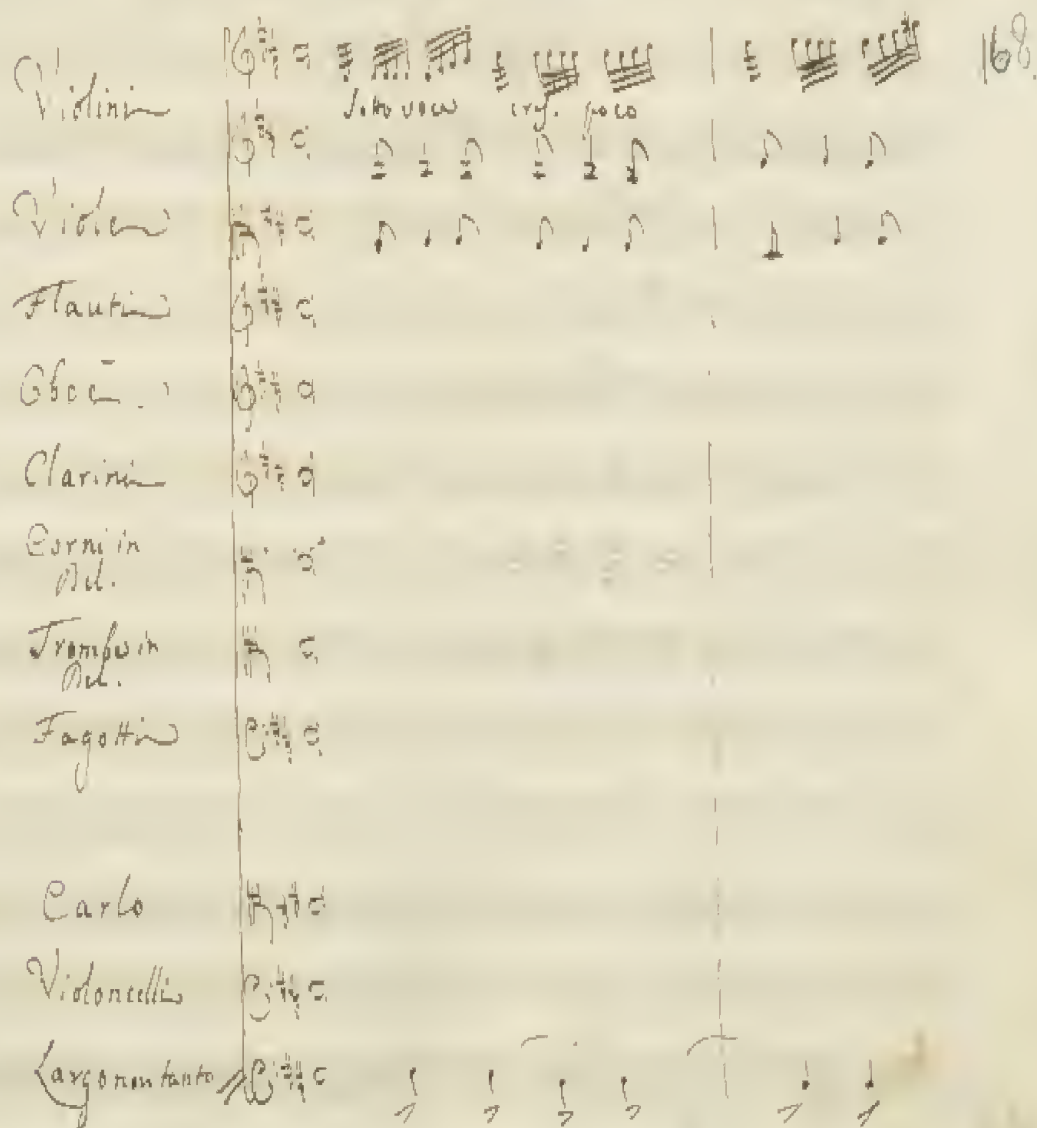 168.
Violini
sotto voce cresc. poco
Viole
Flauti
Oboe
Clarini
Corni in
Trombe in
Fagotti
Carlo
Violoncelli
Largo non tanto